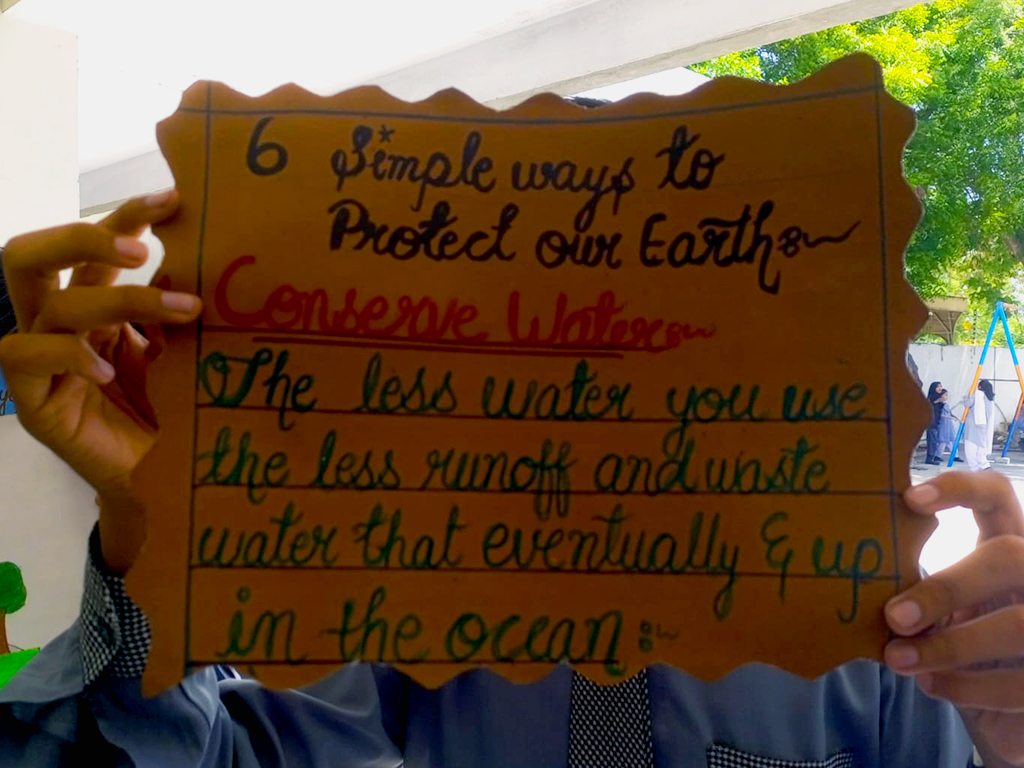 6 Simple ways to
Protect our Earth:~
Conserve Water:~
The less water you use
the less runoff and waste
water that eventually & up
in the ocean:~